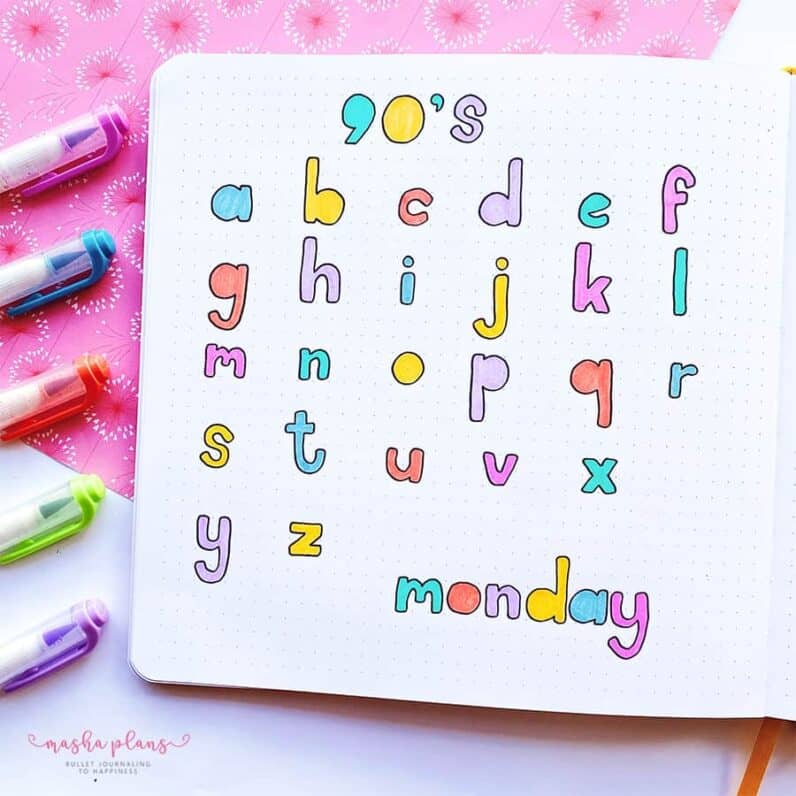 90's
a b c d e f
g h i j k l
m n o p q r
s t u v x
y z
monday
masha plans
BULLET JOURNALING
TO HAPPINESS